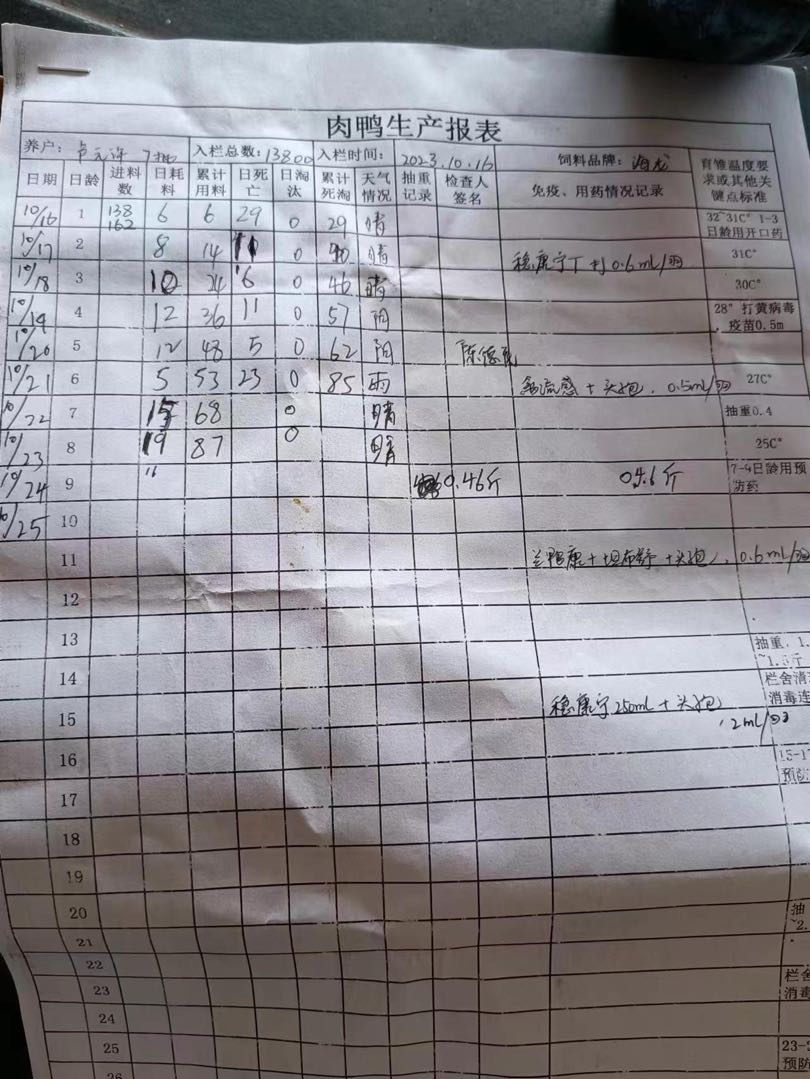 肉鸭生产报表
养户： 7批 入栏总数：13800 入栏时间： 2023.10.16 饲料品牌：海龙 育雏温度要求或其他关键点标准
日期 日龄 进料数 日耗料 累计用料 日死亡 日淘汰 累计死淘 天气情况 抽重记录 检查人签名 免疫、用药情况记录
10/16 1 138 162 6 6 29 0 29 晴 32~31C° 1-3日龄用开口药
10/17 2 8 14 11 0 40 晴 稳康宁 打0.6mL/羽 31C°
10/18 3 10 24 6 0 46 晴 30C°
10/19 4 12 36 11 0 57 阴 28° 打黄病毒疫苗0.5m
10/20 5 12 48 5 0 62 阴
10/21 6 5 53 23 0 85 雨 禽流感+头孢．0.5mL/羽 27C°
10/22 7 15 68 0 晴 抽重0.4
10/23 8 19 87 0 晴 25C°
10/24 9 0.46斤 0.46斤 7-4日龄用预防药
10/25 10
11 +头孢，0.6mL/羽
12
13 抽重．1.
14 栏舍清 消毒连
15 稳康宁250mL+头孢
16 15-17 预防
17
18
19
20 抽
21
22
23 栏舍 消毒
24
25 23-2 预防
26